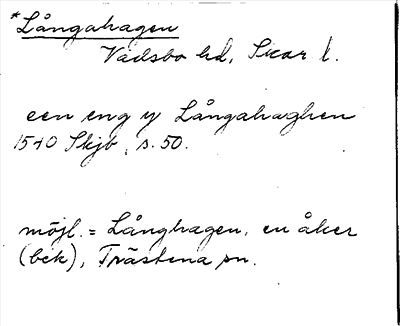 *Långahagen
Vadsbo hd, Skar l.
een eng y Långahaghen
1540 Skjb, s. 50.
möjl. = Långhagen, en åker
(bek), Trästena sn.